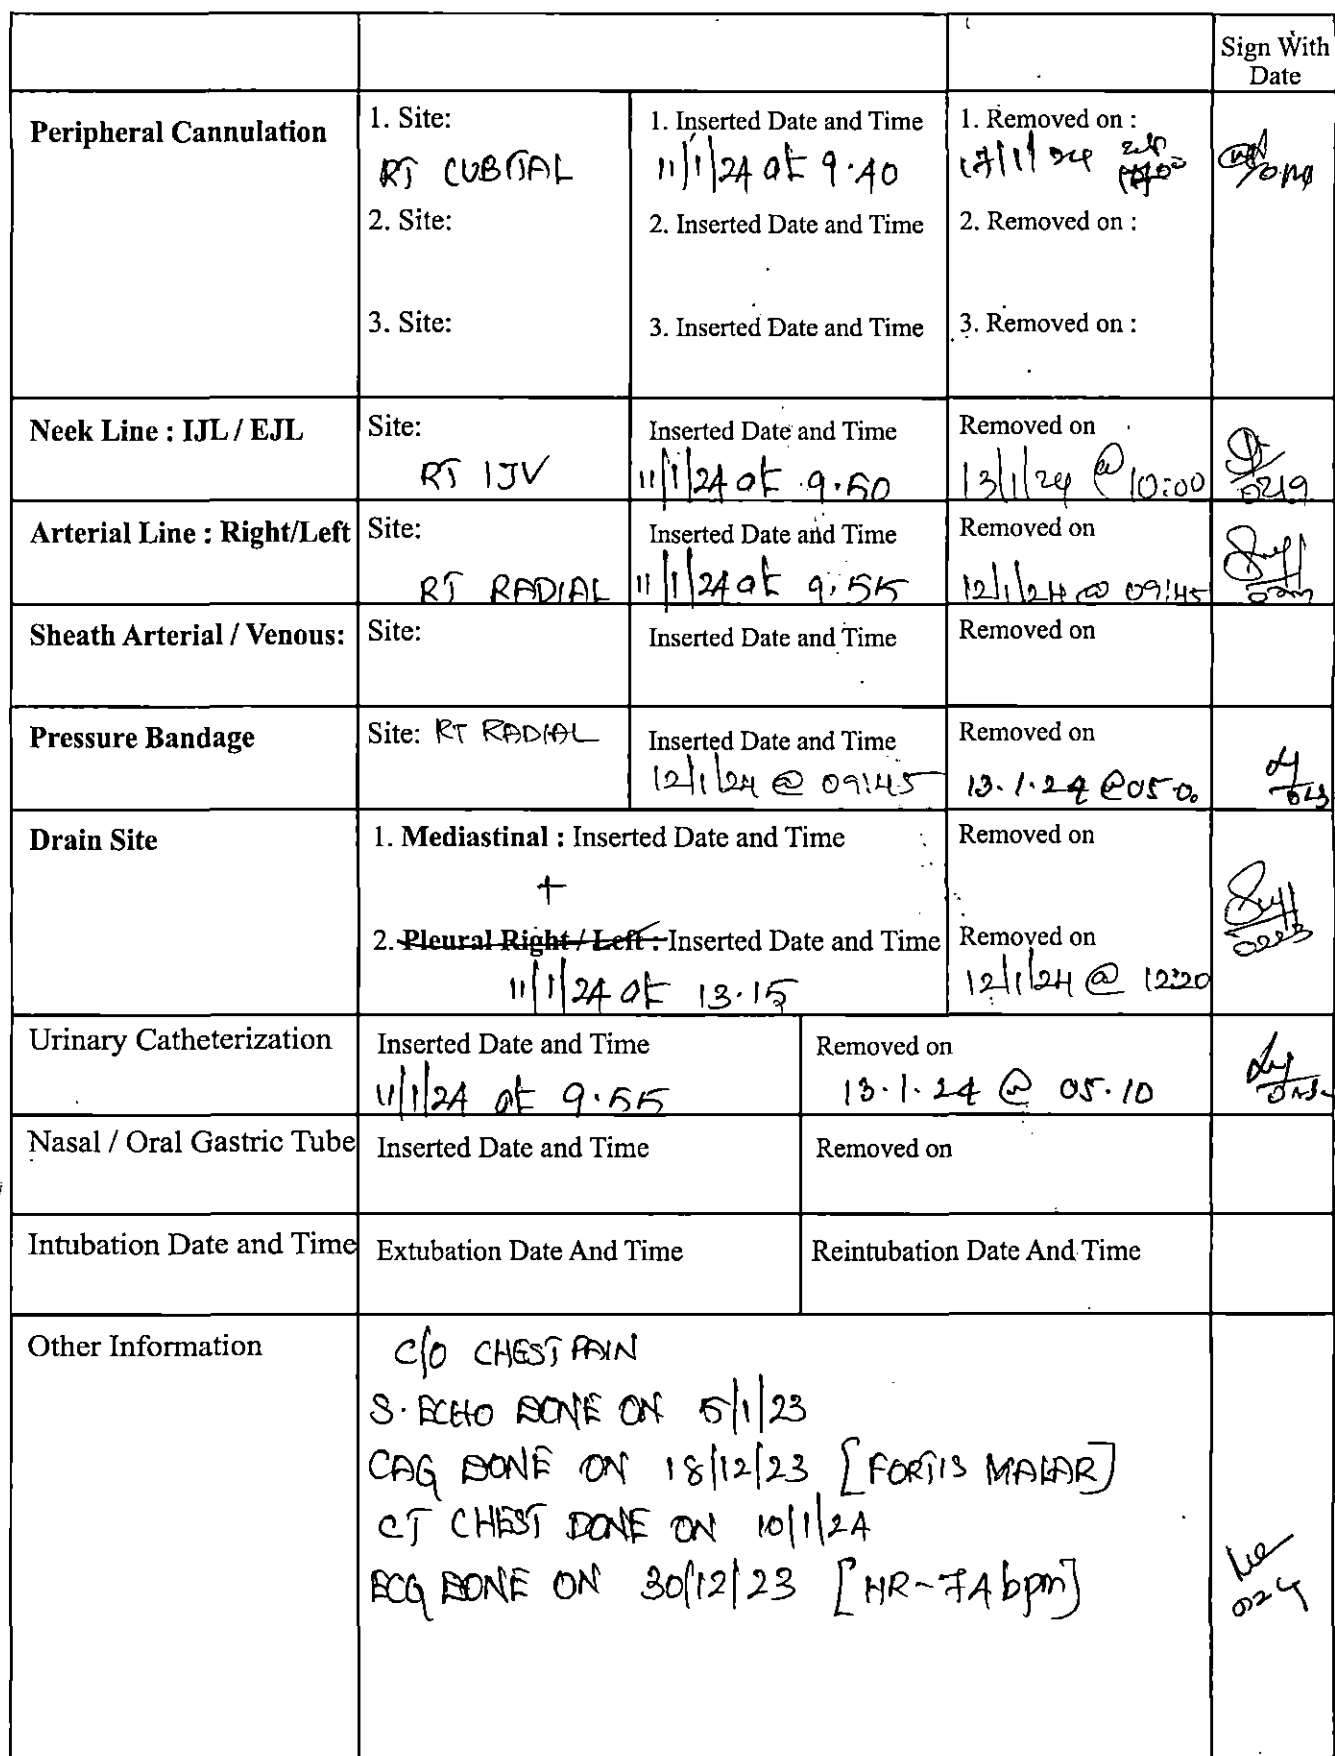 Sign With
Date
Peripheral Cannulation
1. Site:
RT CUBITAL
1. Inserted Date and Time
11/1/24 at 9.40
1. Removed on :
17/1/24
2. Site:
2. Inserted Date and Time
2. Removed on :
3. Site:
3. Inserted Date and Time
3. Removed on :
Neek Line : IJL / EJL
Site:
RT IJV
Inserted Date and Time
11/1/24 at 9.50
Removed on
13/1/24 @ 10:00
0219
Arterial Line : Right/Left
Site:
RT RADIAL
Inserted Date and Time
11/1/24 at 9.55
Removed on
12/1/24 @ 09:45
Sheath Arterial / Venous:
Site:
Inserted Date and Time
Removed on
Pressure Bandage
Site: RT RADIAL
Inserted Date and Time
12/1/24 @ 09:45
Removed on
13.1.24 @
Drain Site
1. Mediastinal : Inserted Date and Time
Removed on
+
2. Pleural Right / Left : Inserted Date and Time
11/1/24 at 13.15
Removed on
12/1/24 @ 1220
Urinary Catheterization
Inserted Date and Time
11/1/24 at 9.55
Removed on
13.1.24 @ 05.10
Nasal / Oral Gastric Tube
Inserted Date and Time
Removed on
Intubation Date and Time
Extubation Date And Time
Reintubation Date And Time
Other Information
C/O CHEST PAIN
S. ECHO DONE ON 5/1/23
CAG DONE ON 18/12/23 [FORTIS MALAR]
CT CHEST DONE ON 10/1/24
ECG DONE ON 30/12/23 [HR-74bpm]